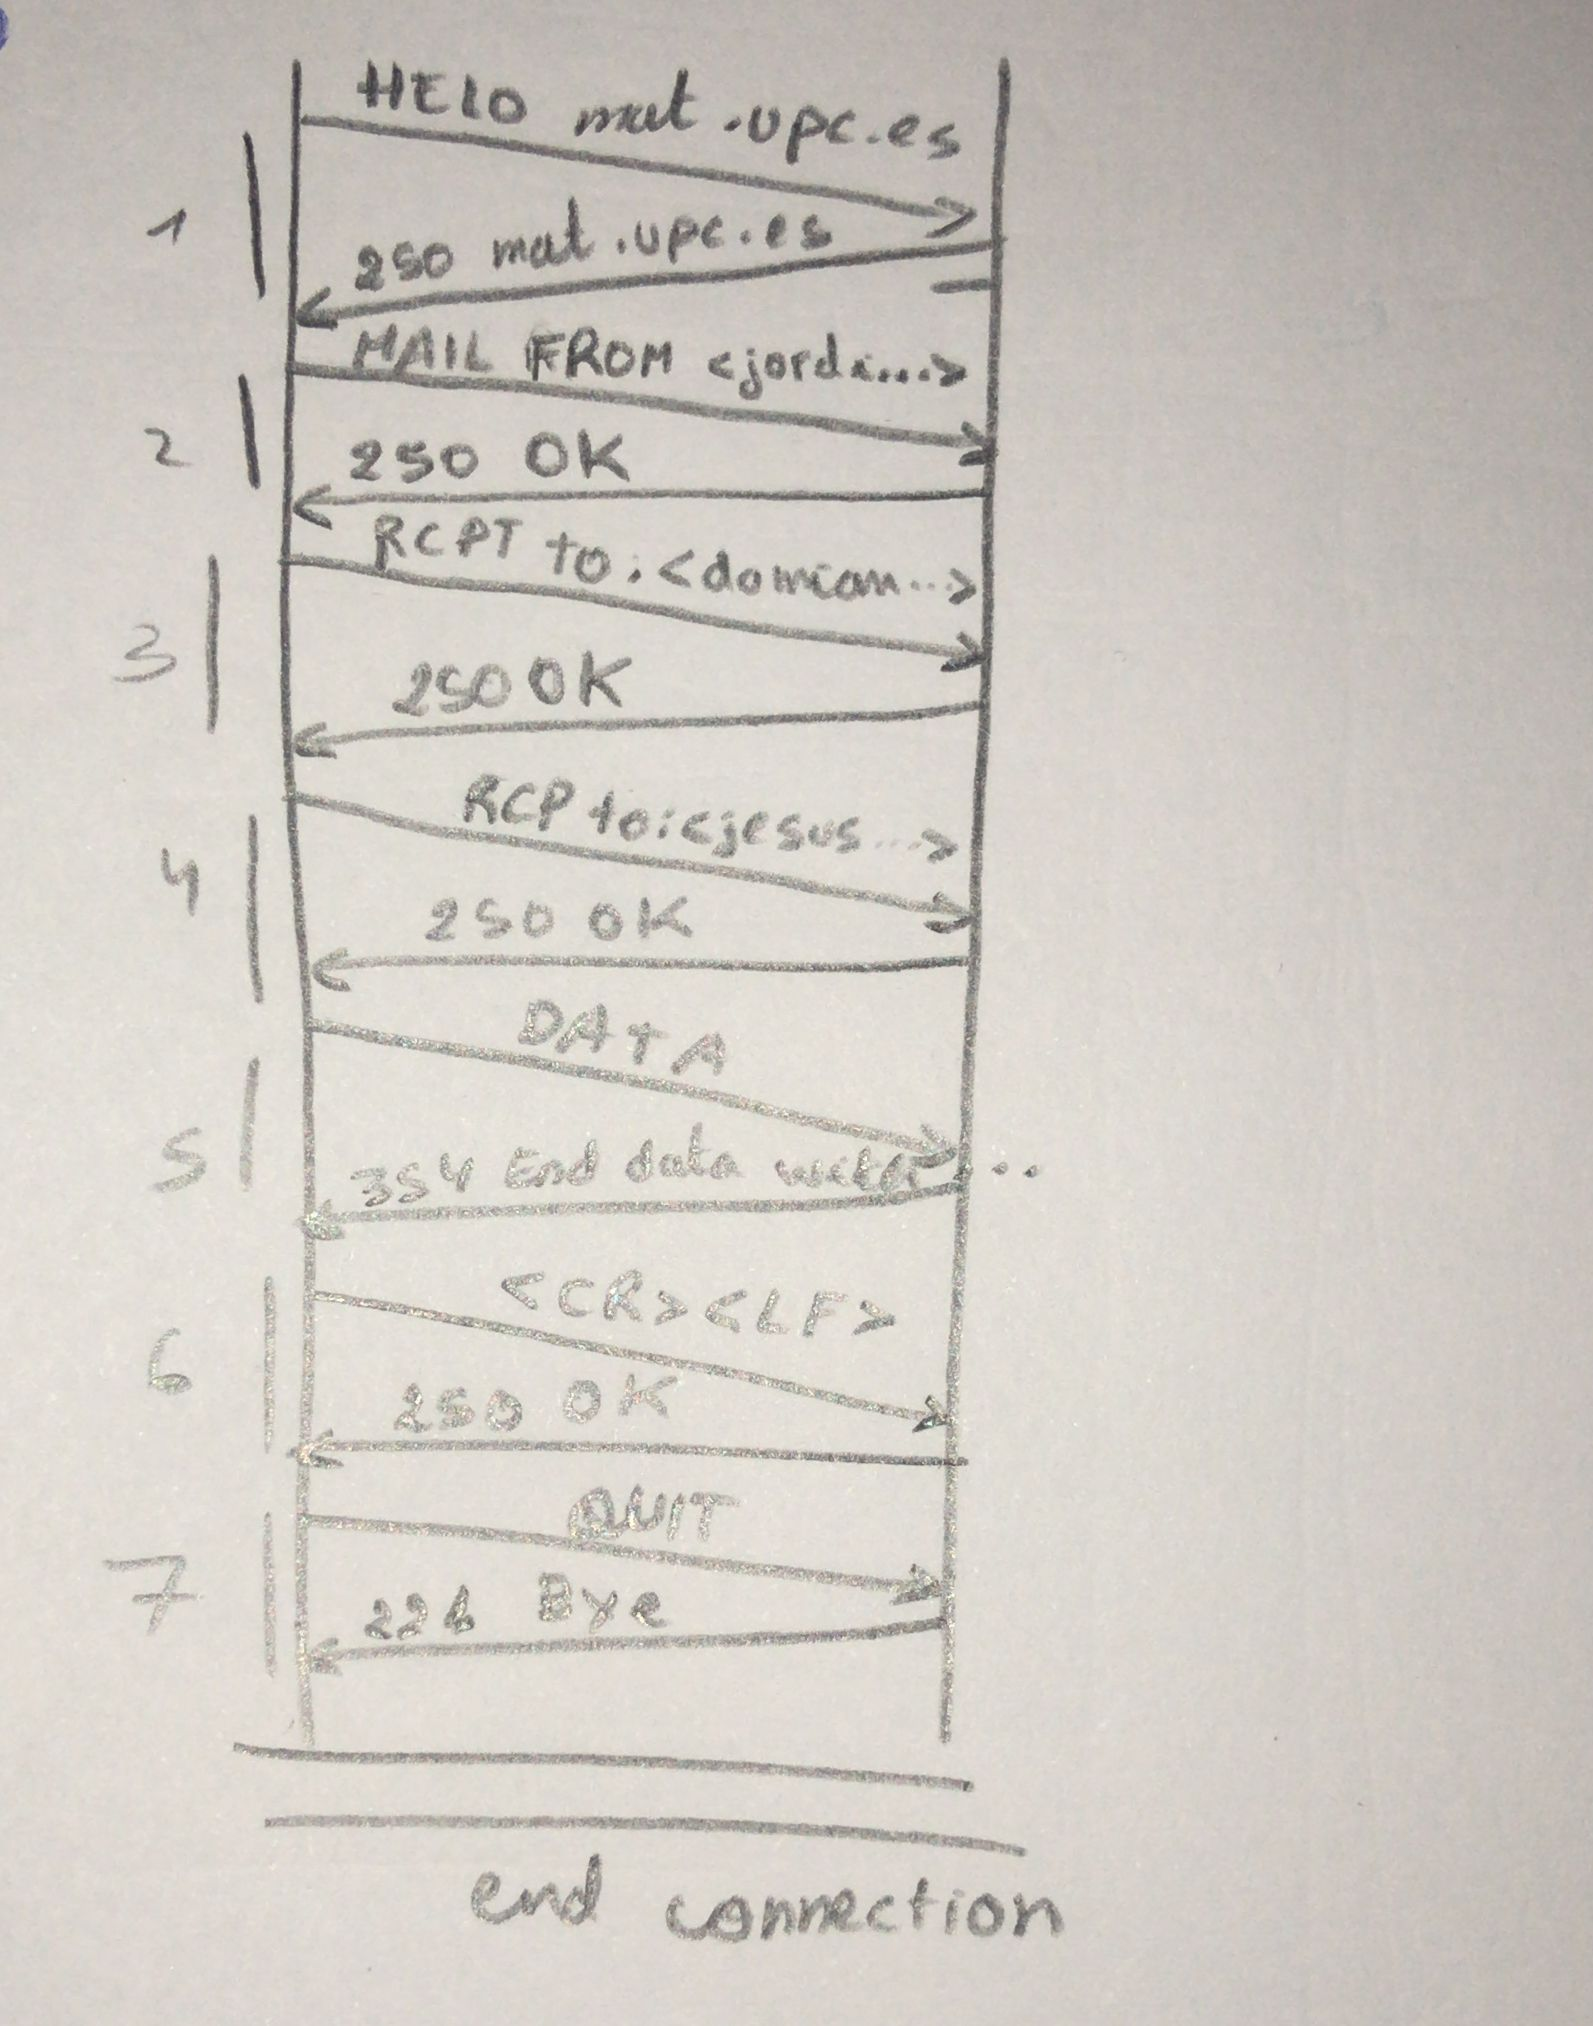 HELO mat.upc.es
1
250 mat.upc.es
MAIL FROM <jordi...>
2
250 OK
RCPT to:<domian...>
3
250 OK
RCP to:<jesus...>
4
250 OK
DATA
5
354 End data with ...
<CR><LF>
6
250 OK
QUIT
7
221 Bye
end connection